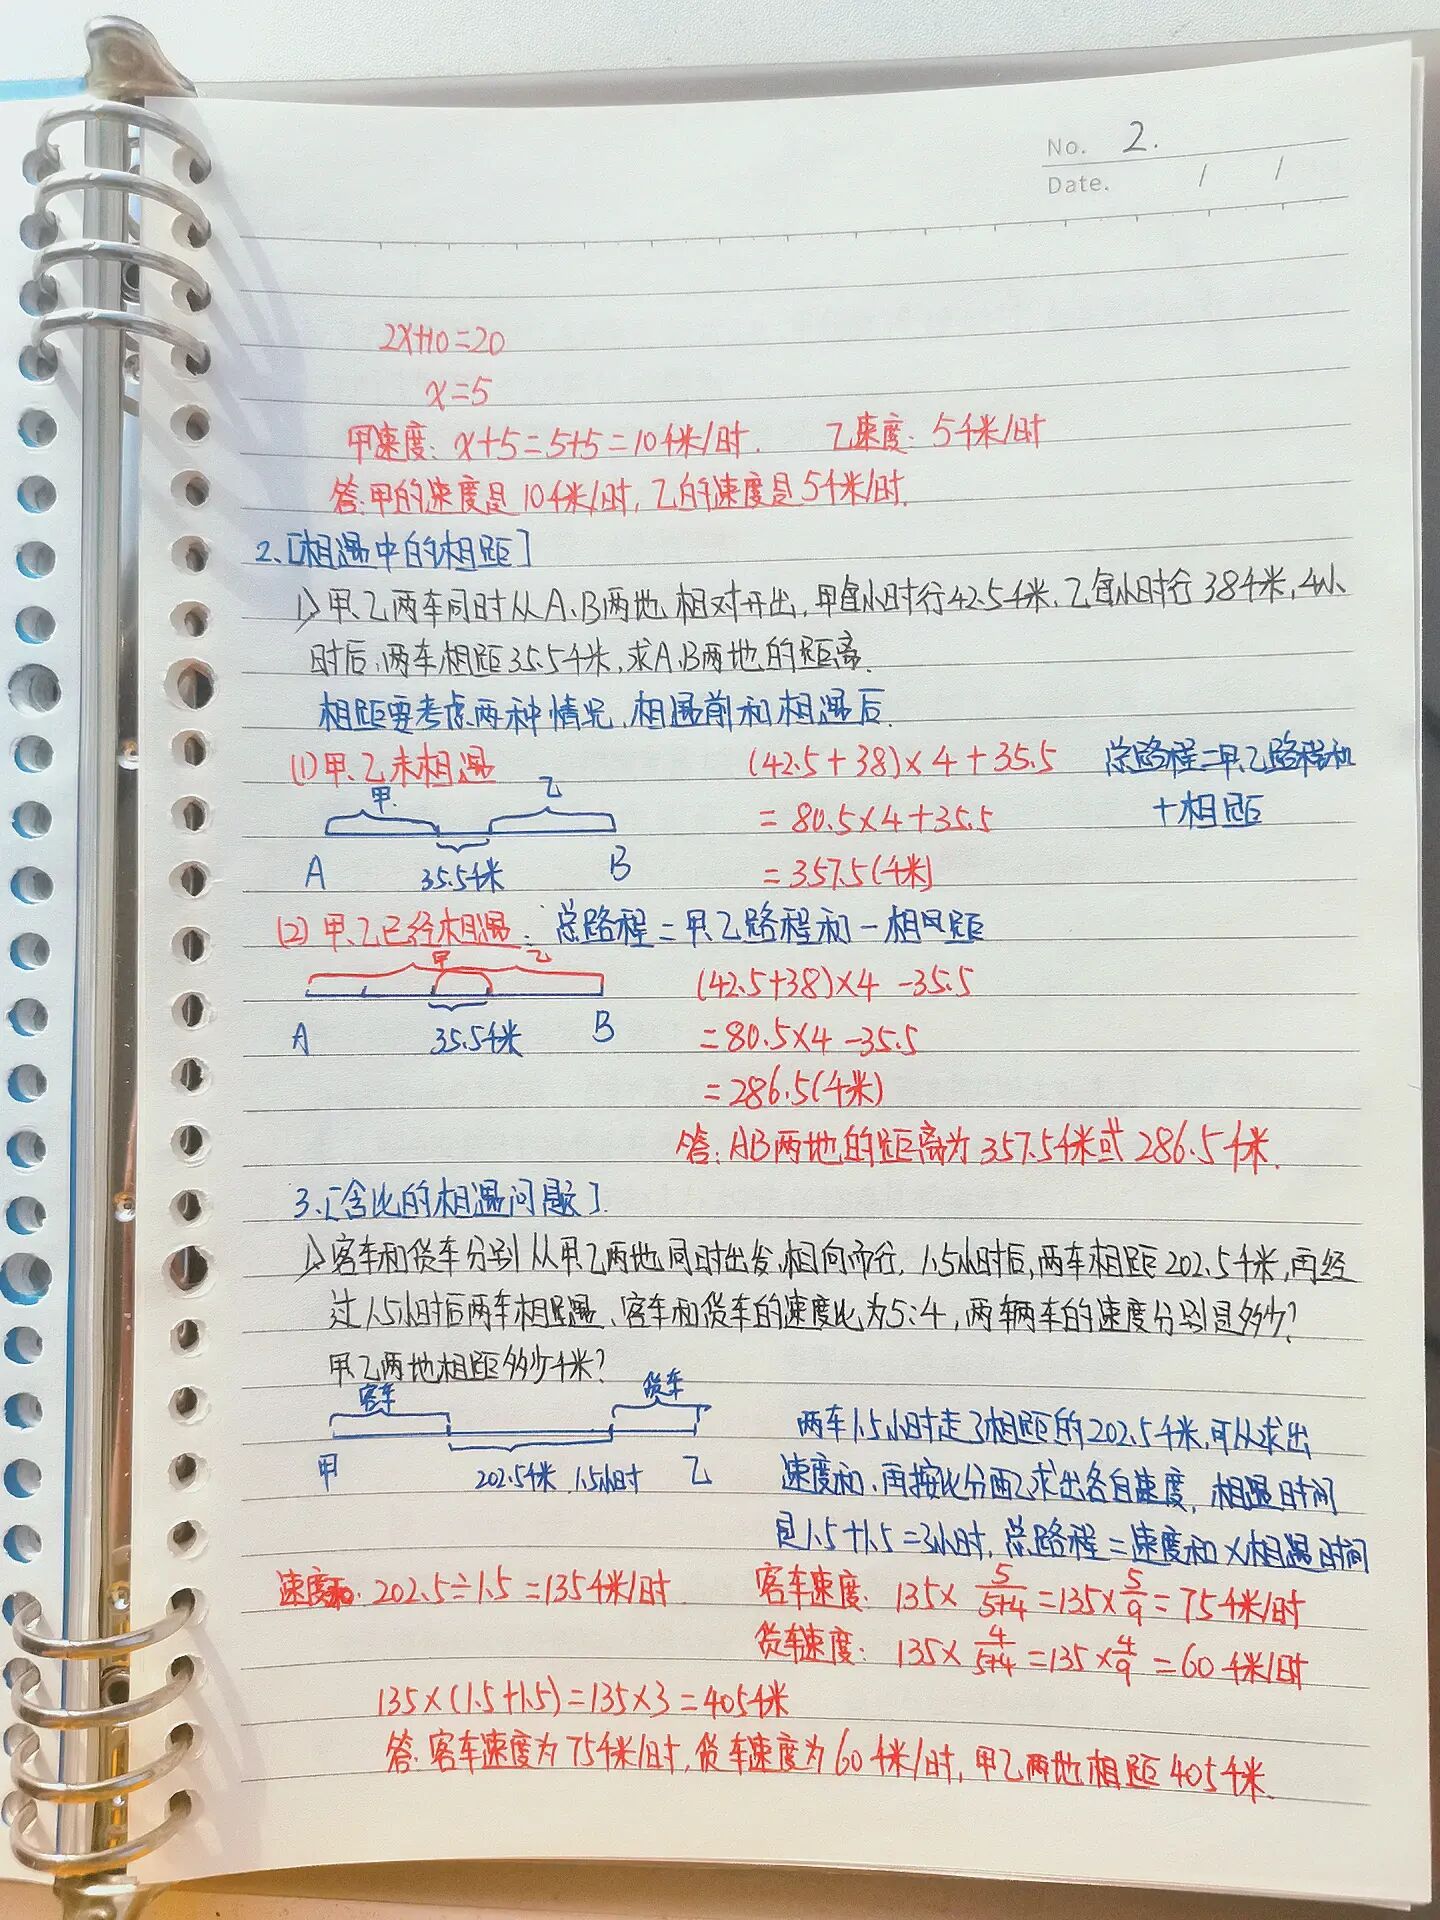 No. 2.
Date. / /
2x+10=20
x=5
甲速度: x+5=5+5=10千米/时. 乙速度: 5千米/时
答:甲的速度是10千米/时, 乙的速度是5千米/时.
2、[相遇中的相距]
1> 甲、乙两车同时从A、B两地相对开出, 甲每小时行42.5千米, 乙每小时行38千米, 4小
时后,两车相距35.5千米,求A、B两地的距离.
相距要考虑两种情况,相遇前和相遇后.
(1)甲、乙未相遇 (42.5+38)×4+35.5 总路程=甲、乙路程和
甲. 乙 =80.5×4+35.5 +相距
A 35.5千米 B =357.5(千米)
(2)甲、乙已经相遇: 总路程=甲、乙路程和-相距
甲 乙 (42.5+38)×4-35.5
A 35.5千米 B =80.5×4-35.5
=286.5(千米)
答:AB两地的距离为357.5千米或286.5千米.
3.[含比的相遇问题].
1> 客车和货车分别从甲乙两地同时出发,相向而行, 1.5小时后,两车相距202.5千米,再经
过1.5小时后两车相遇、客车和货车的速度比为5:4,两辆车的速度分别是多少?
甲乙两地相距多少千米?
客车 货车
甲 202.5千米 1.5小时 乙
两车1.5小时走了相距的202.5千米,可以求出
速度和,再按比分配求出各自速度, 相遇时间
是1.5+1.5=3小时,总路程=速度和×相遇时间
速度和: 202.5÷1.5=135千米/时. 客车速度: 135×5/(5+4)=135×5/9=75千米/时
货车速度: 135×4/(5+4)=135×4/9=60千米/时
135×(1.5+1.5)=135×3=405千米
答:客车速度为75千米/时,货车速度为60千米/时,甲乙两地相距405千米.